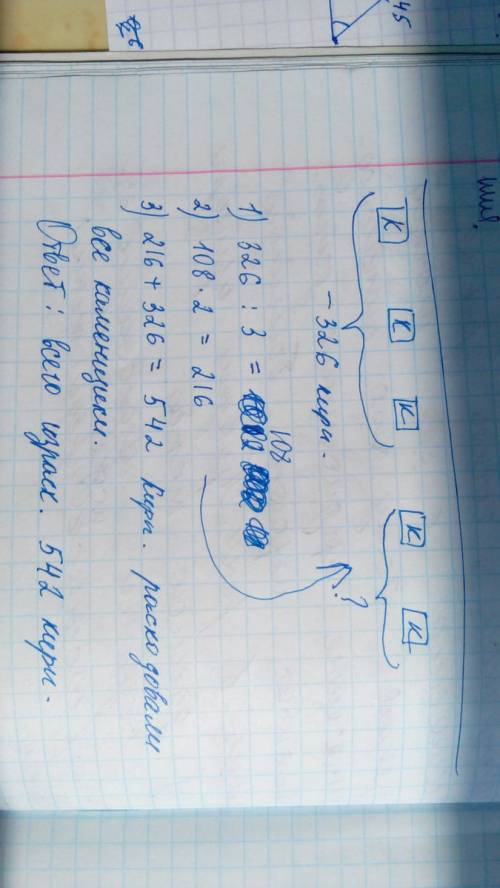 К К К К К
- 326 кирп. ?
1) 326 : 3 = 108
2) 108 · 2 = 216
3) 216 + 326 = 542 кирп. расходовали
все каменщики.
Ответ: всего израсх. 542 кирп.
45